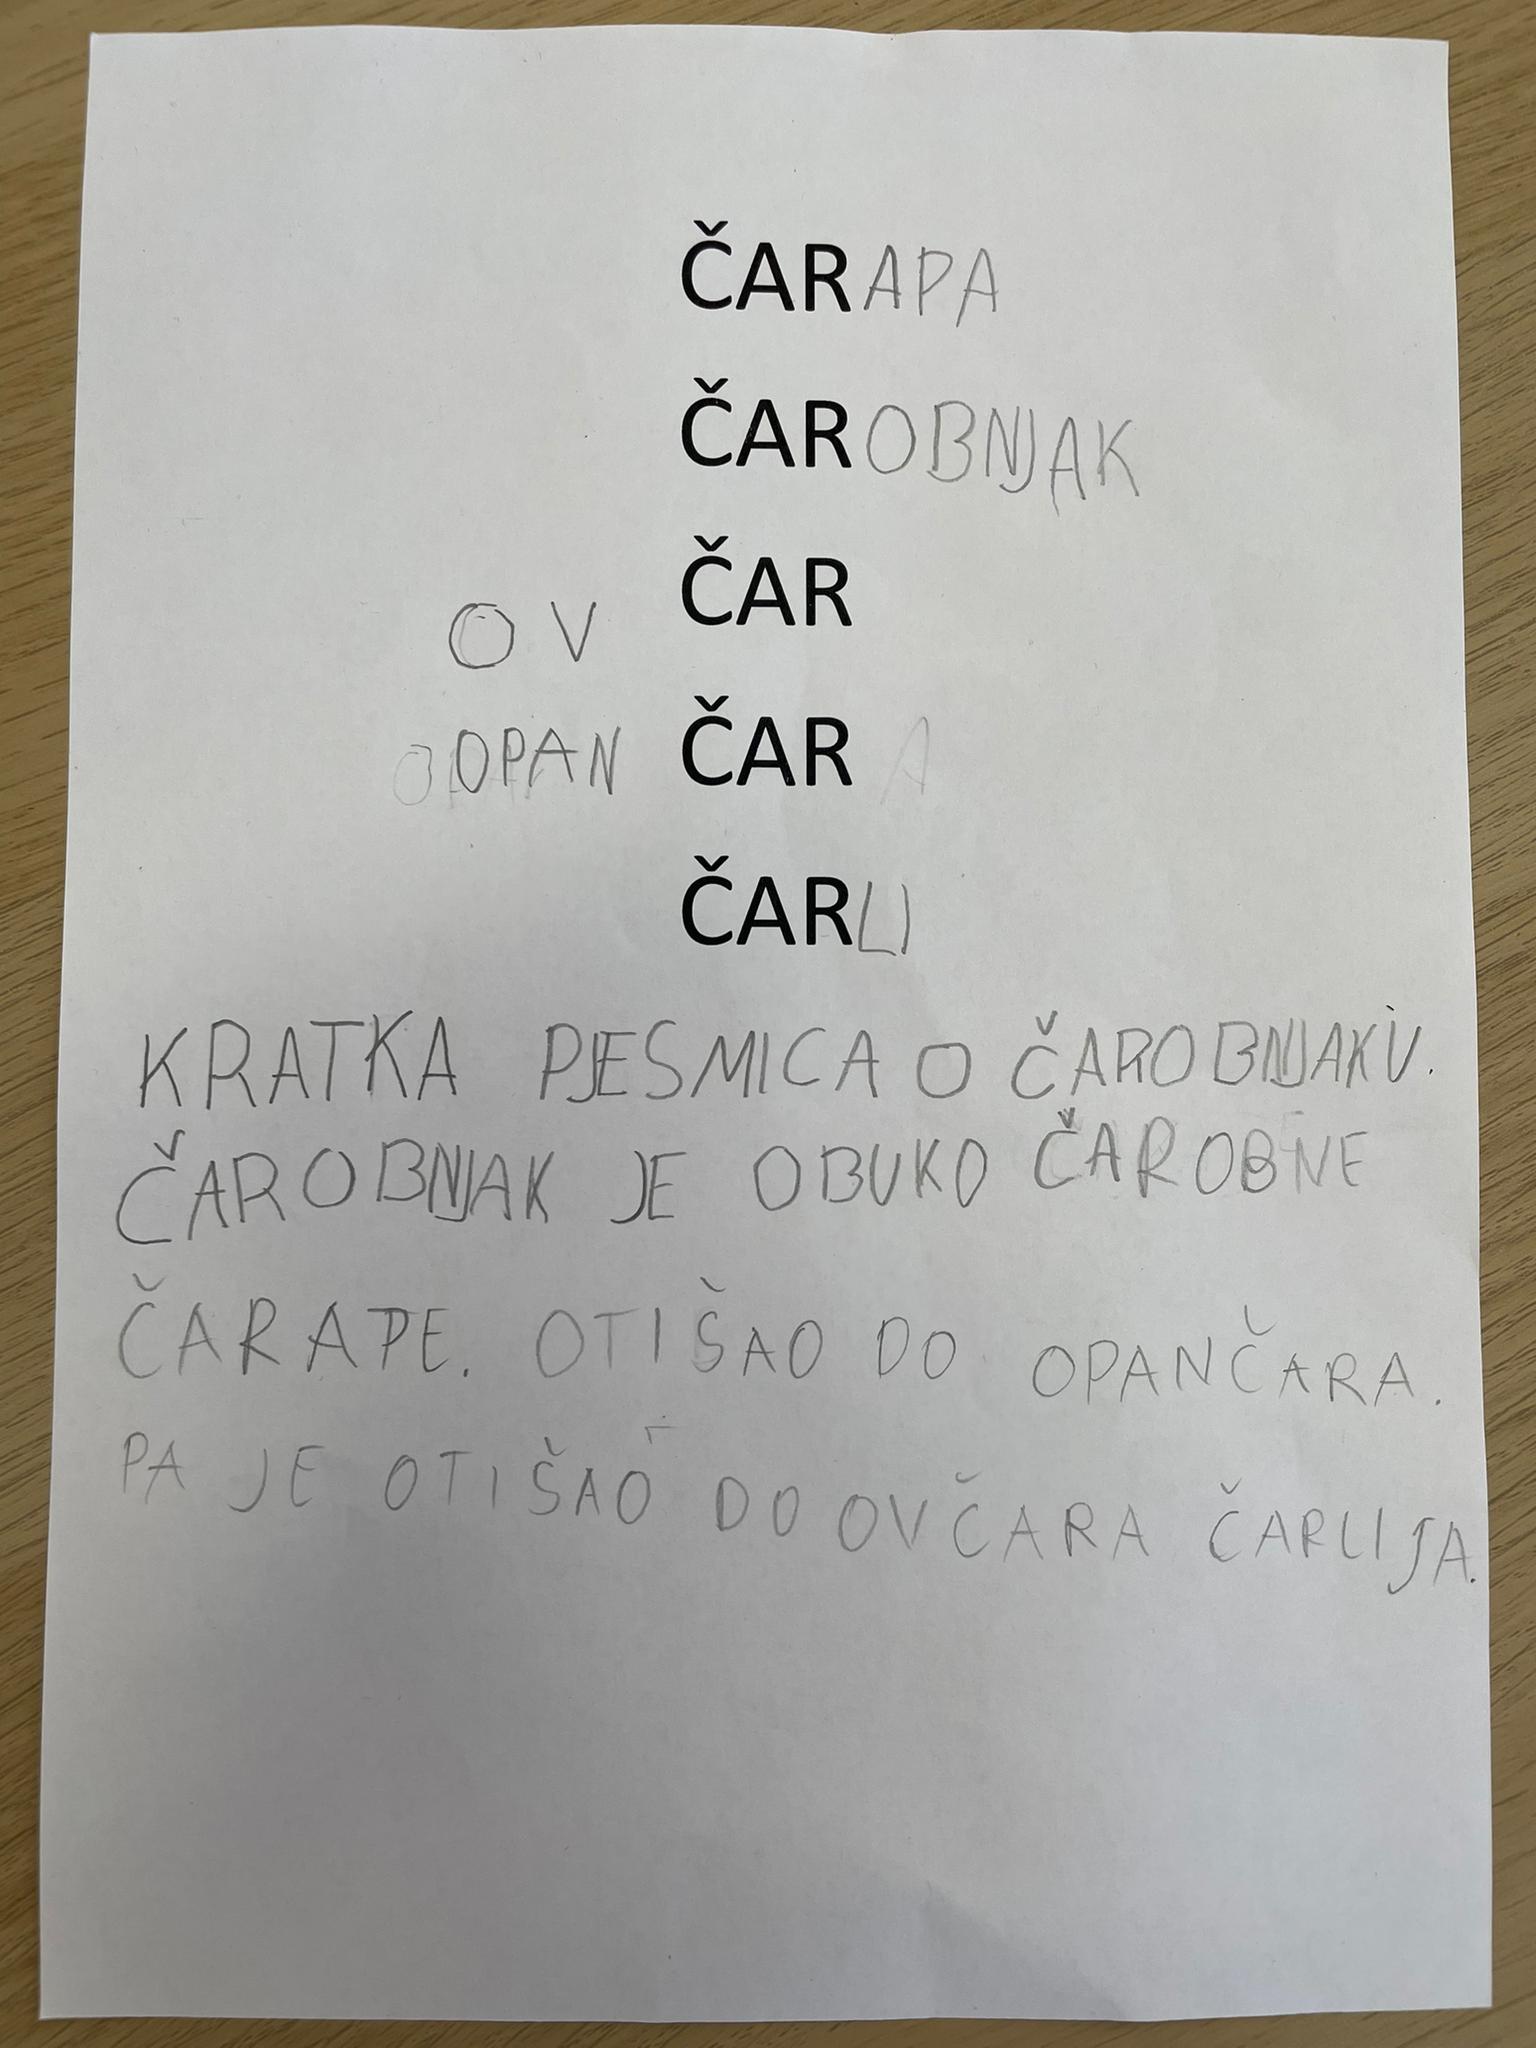 ČARAPA
ČAROBNJAK
OV ČAR
OPAN ČAR
ČARLI
KRATKA PJESMICA O ČAROBNJAKU.
ČAROBNJAK JE OBUKO ČAROBNE
ČARAPE. OTIŠAO DO OPANČARA.
PA JE OTIŠAO DO OVČARA ČARLIJA.